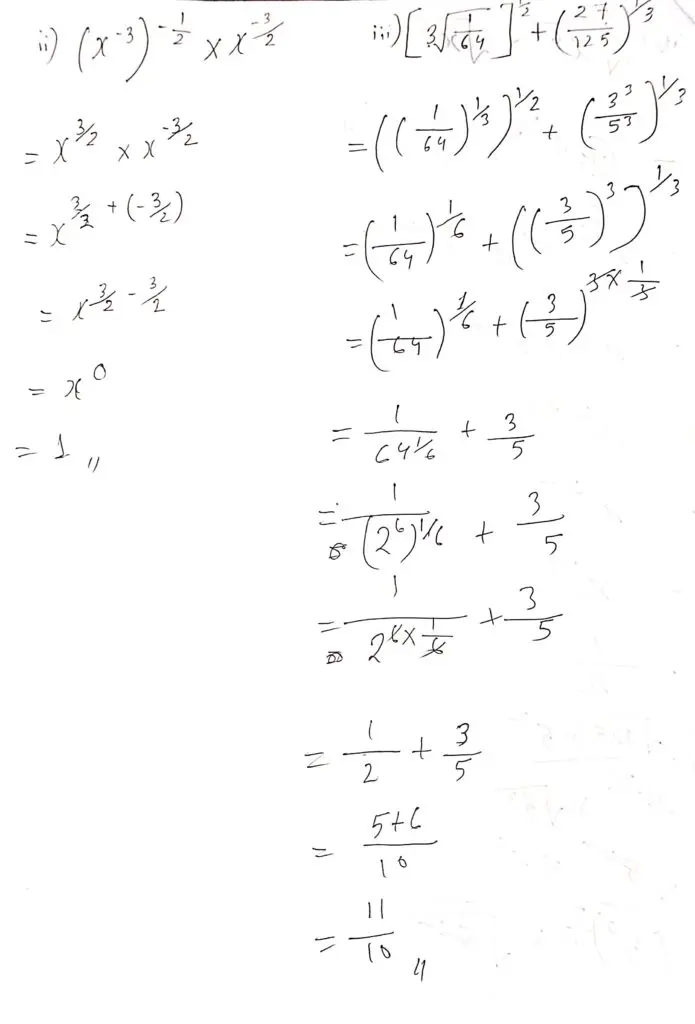 ii) (x⁻³)^(-1/2) × x^(-3/2)
= x^(3/2) × x^(-3/2)
= x^(3/2 + (-3/2))
= x^(3/2 - 3/2)
= x⁰
= 1,,
iii) [3√(1/64)]^(1/2) + (27/125)^(1/3)
= ((1/64)^(1/3))^(1/2) + (3³/5³)^(1/3)
= (1/64)^(1/6) + ((3/5)³)^(1/3)
= (1/64)^(1/6) + (3/5)^(3 × 1/3)
= 1/64^(1/6) + 3/5
= 1/(2⁶)^(1/6) + 3/5
= 1/2^(6 × 1/6) + 3/5
= 1/2 + 3/5
= (5+6)/10
= 11/10,,